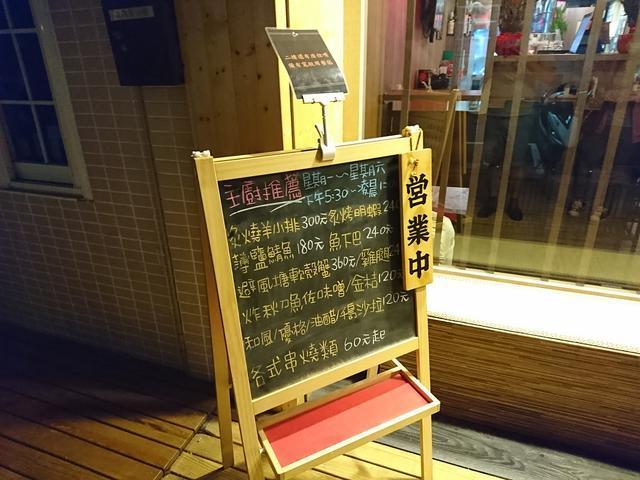 二樓還有座位哦
主廚推薦
星期一～星期六
下午5:30~凌晨1:
炙燒羊小排300元 炙烤明蝦24
薄鹽鯖魚180元 魚下巴240元
避風塘軟殼蟹360元/雞腿
炸秋刀魚佐味噌/金桔120
和風/優格/油醋/千島沙拉120元
各式串燒類 60元起
營業中